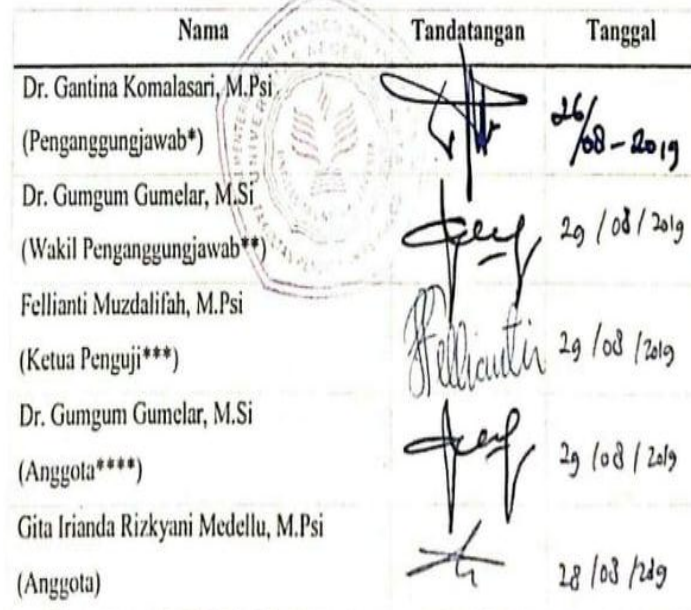 Nama Tandatangan Tanggal
Dr. Gantina Komalasari, M.Psi
(Penganggungjawab*) 26/08-2019
Dr. Gumgum Gumelar, M.Si
(Wakil Penganggungjawab**) 29/08/2019
Fellianti Muzdalifah, M.Psi
(Ketua Penguji***) Fellianti 29/08/2019
Dr. Gumgum Gumelar, M.Si
(Anggota****) 29/08/2019
Gita Irianda Rizkyani Medellu, M.Psi
(Anggota) 28/08/2019